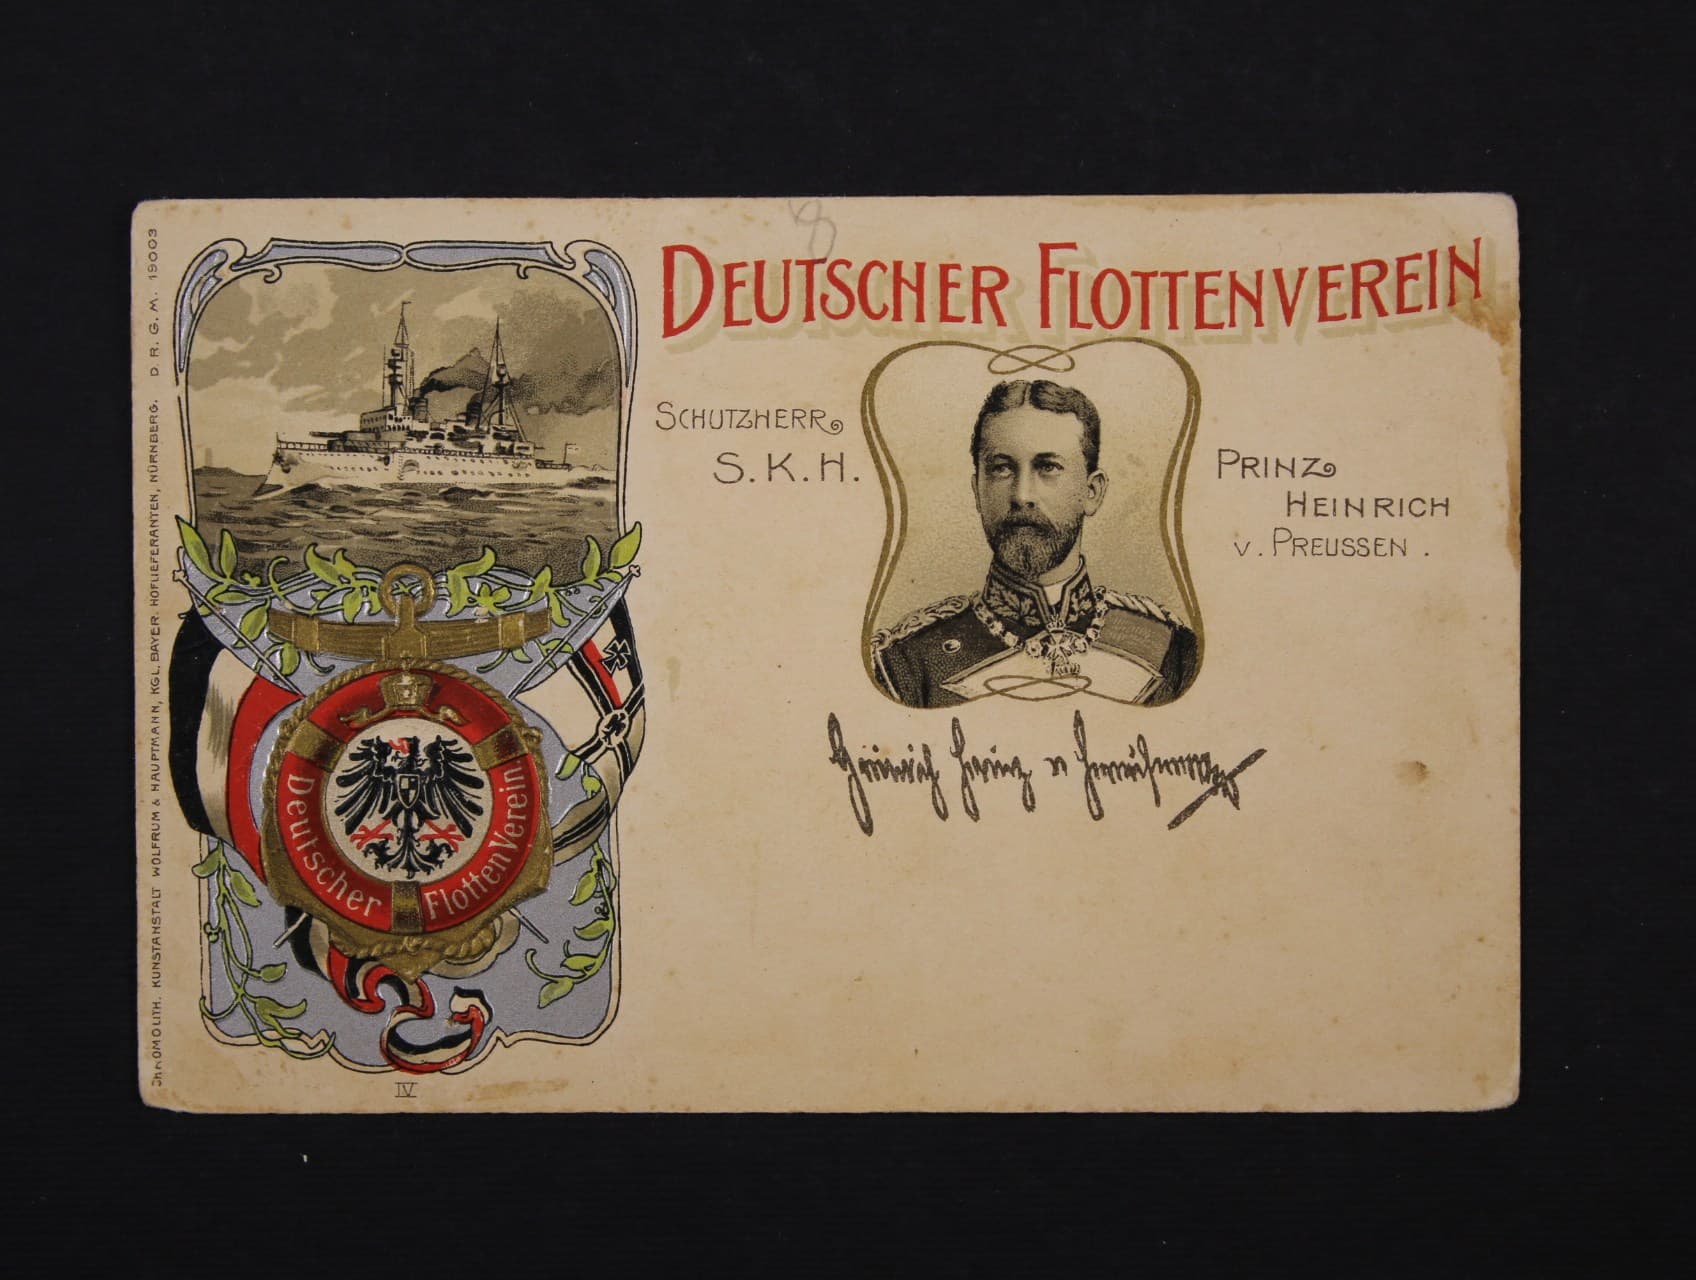 DEUTSCHER FLOTTENVEREIN
SCHUTZHERR
S. K. H.
PRINZ
HEINRICH
v. PREUSSEN.
Heinrich Prinz v Preussen
Deutscher Flotten Verein.
IV
CHROMOLITH. KUNSTANSTALT WOLFRUM & HAUPTMANN, KGL. BAYER. HOFLIEFERANTEN, NÜRNBERG. D. R. G. M. 19003
8